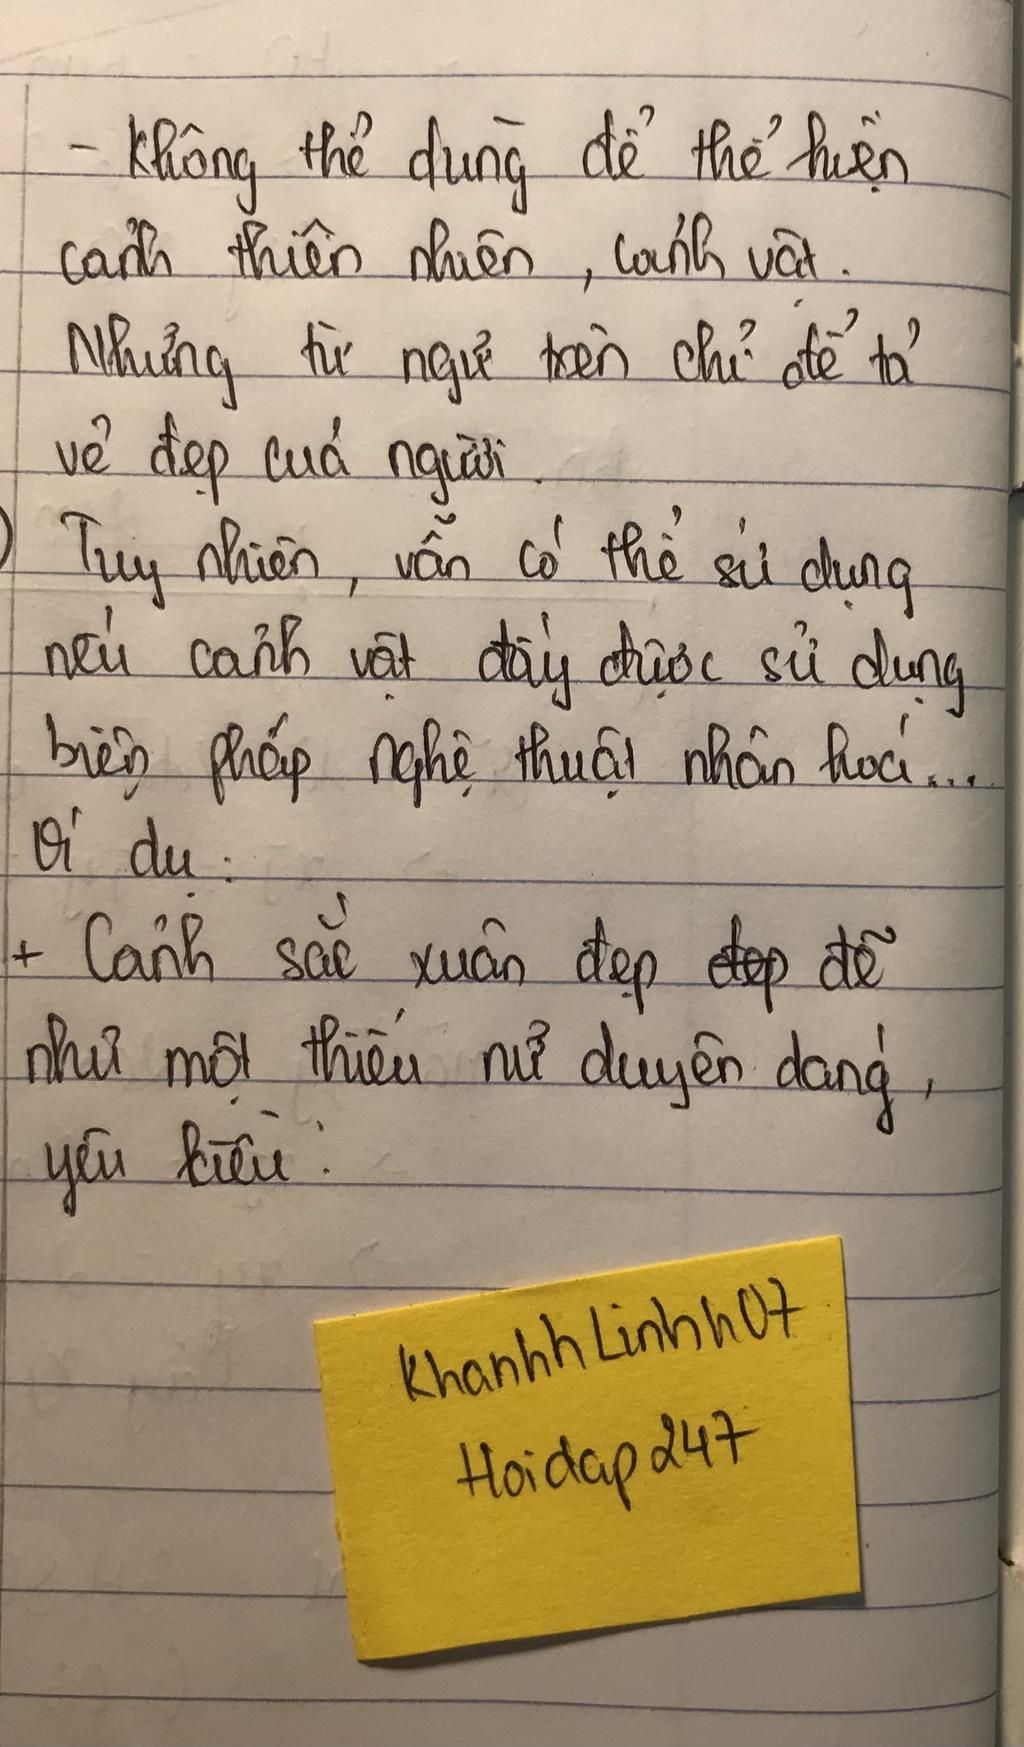 - Không thể dùng để thể hiện
cảnh thiên nhiên, cảnh vật.
Những từ ngữ trên chỉ để tả
vẻ đẹp của người.
) Tuy nhiên, vẫn có thể sử dụng
nếu cảnh vật đấy được sử dụng
biện pháp nghệ thuật nhân hoá...
Ví dụ:
+ Cảnh sắc xuân đẹp đẹp đẽ
như một thiếu nữ duyên dáng,
yêu kiều.
KhanhhLinhh07
Hoidap247